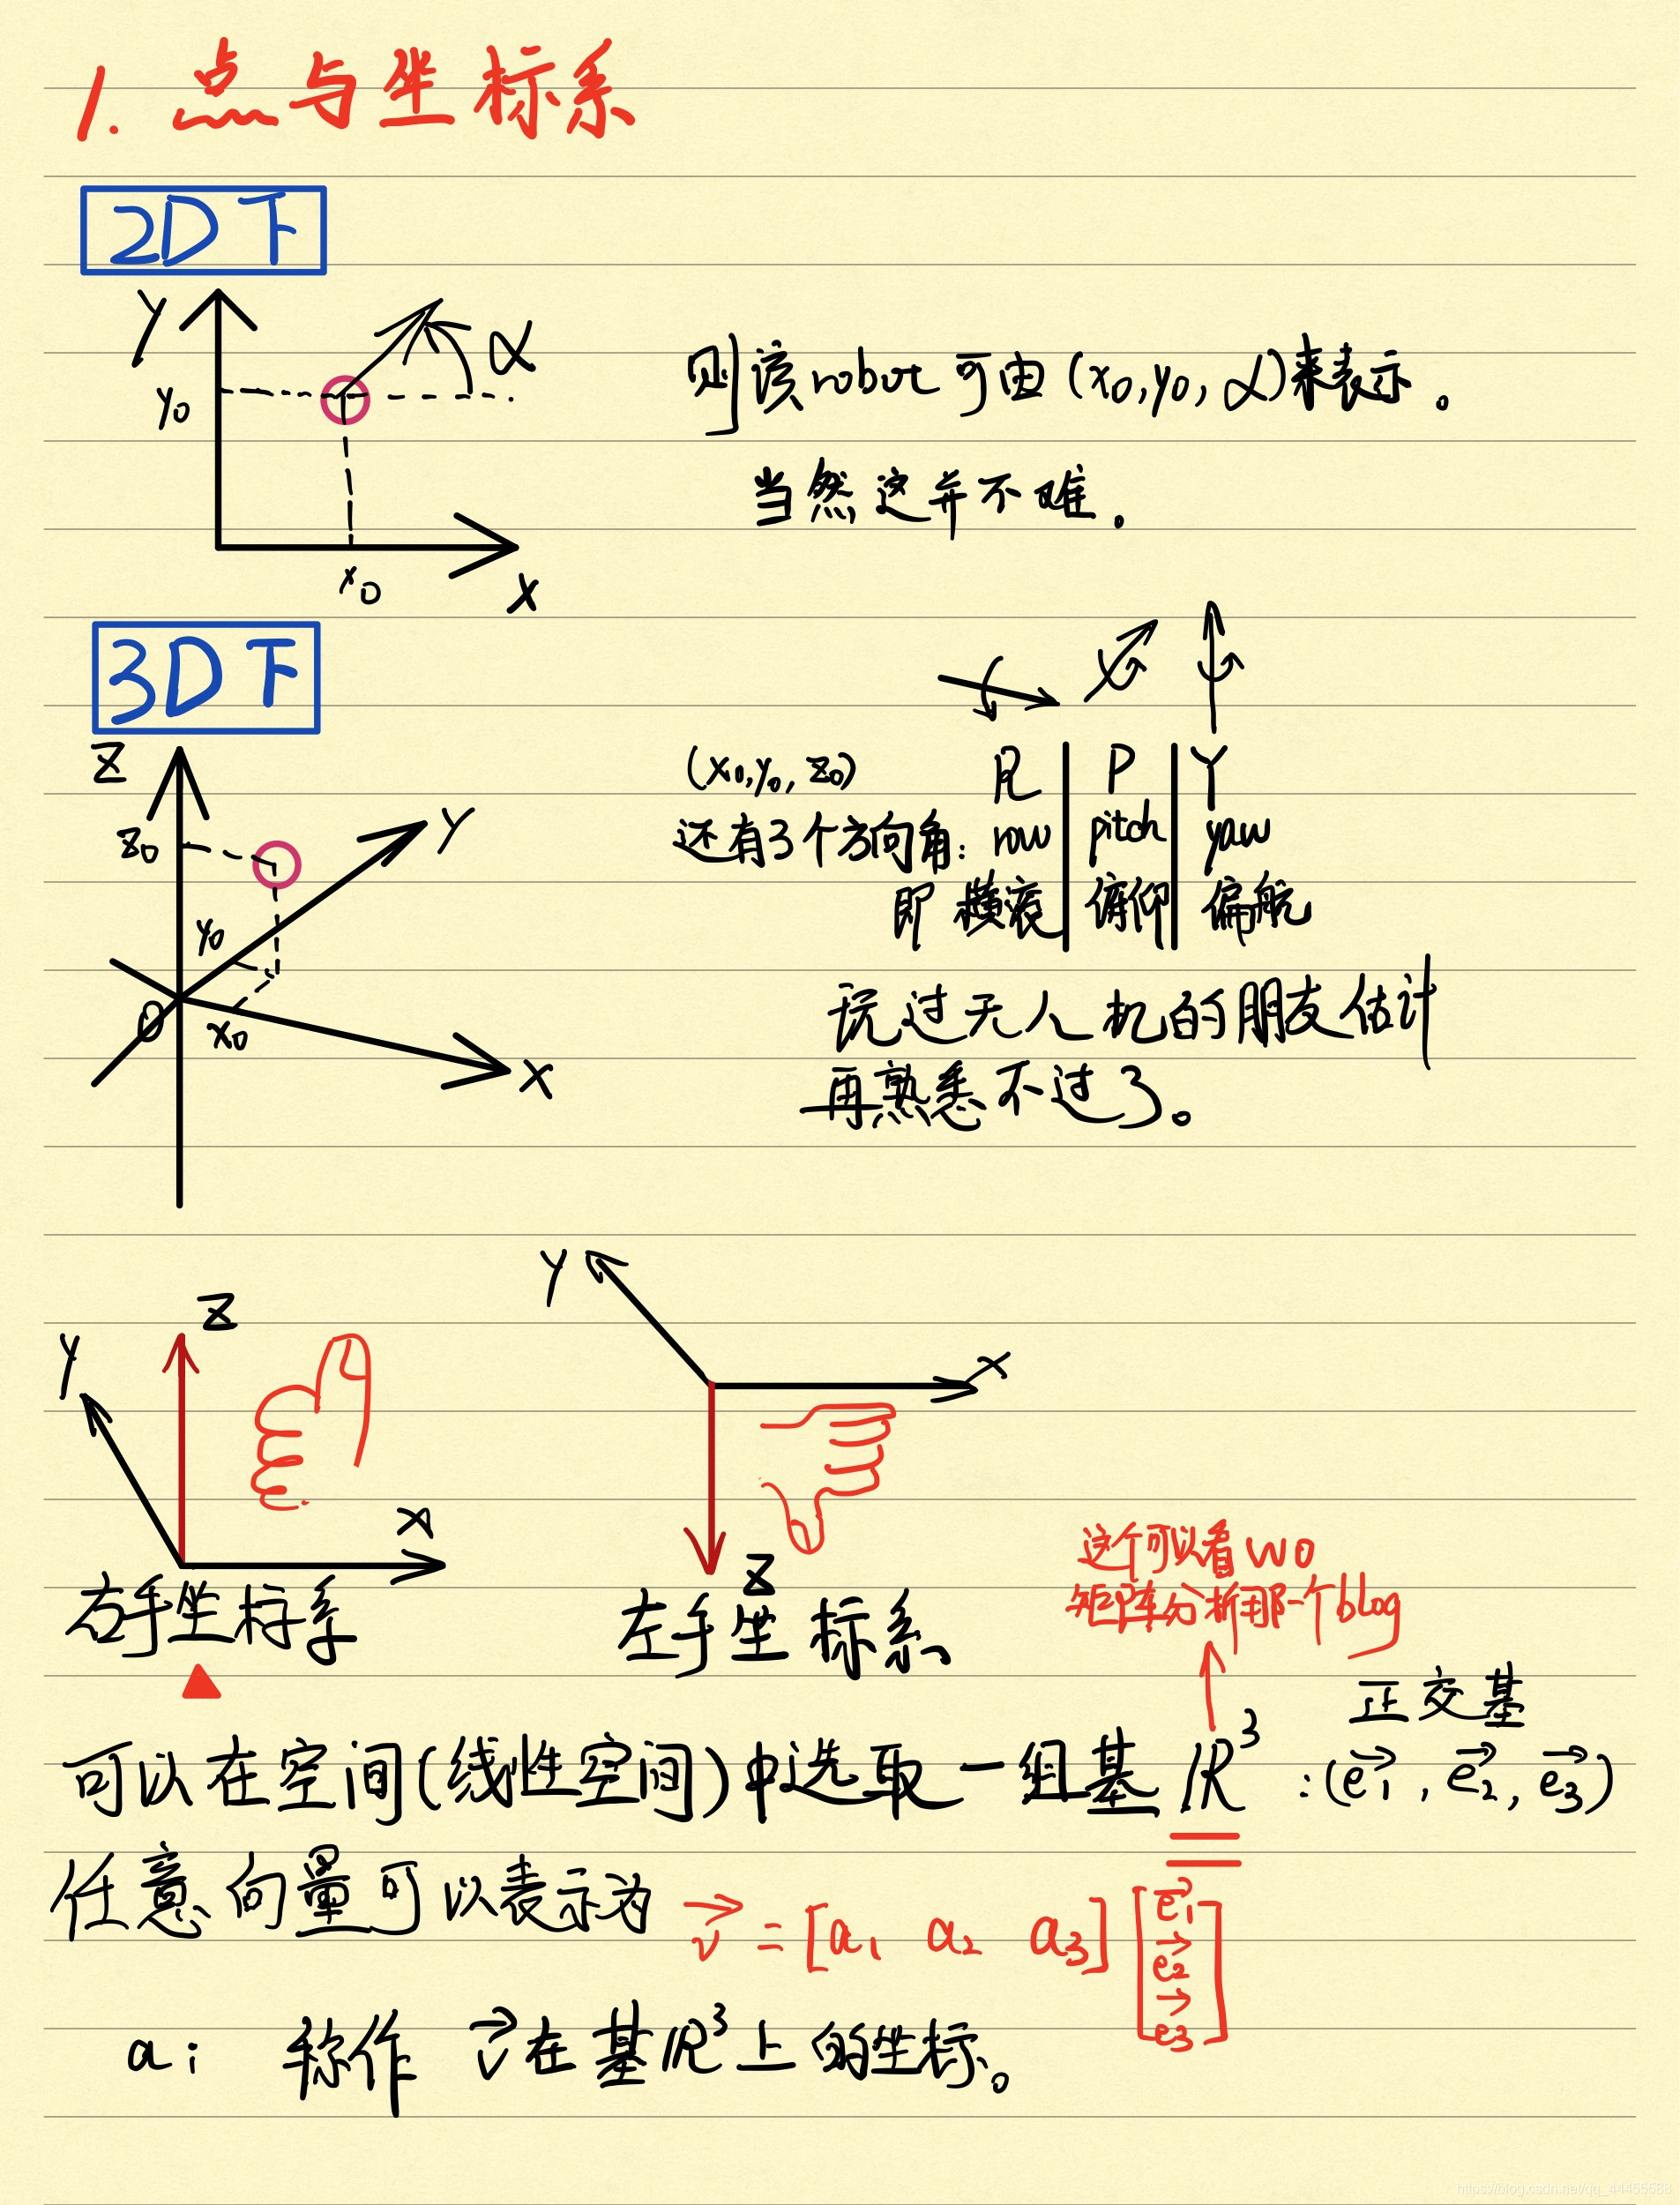 1. 点与坐标系
2D下
Y
α
y₀
x₀
X
则该robot可由(x₀,y₀,α)来表示。
当然这并不难.
3D下
Z
Y
z₀
y₀
O
x₀
X
R P Y
(x₀,y₀,z₀)
还有3个方向角: row pitch yaw
即 横滚 俯仰 偏航
玩过无人机的朋友估计
再熟悉不过了。
Y
Z
X
右手坐标系
Y
X
Z
左手坐标系
这个可以看wo
矩阵分析那一个blog
正交基
可以在空间(线性空间)中选取一组基 ℝ³ :(e⃗₁, e⃗₂, e⃗₃)
任意向量可以表示为 v⃗ = [a₁ a₂ a₃] [e⃗₁
e⃗₂
e⃗₃]
aᵢ 称作 v⃗在基ℝ³上的坐标。